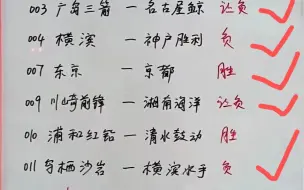 003 广岛三箭 — 名古屋鲸 让负
004 横滨 — 神户胜利 负
007 东京 — 京都 胜
009 川崎前锋 — 湘南海洋 让负
010 浦和红钻 — 清水鼓动 胜
011 鸟栖沙岩 — 横滨水手 负